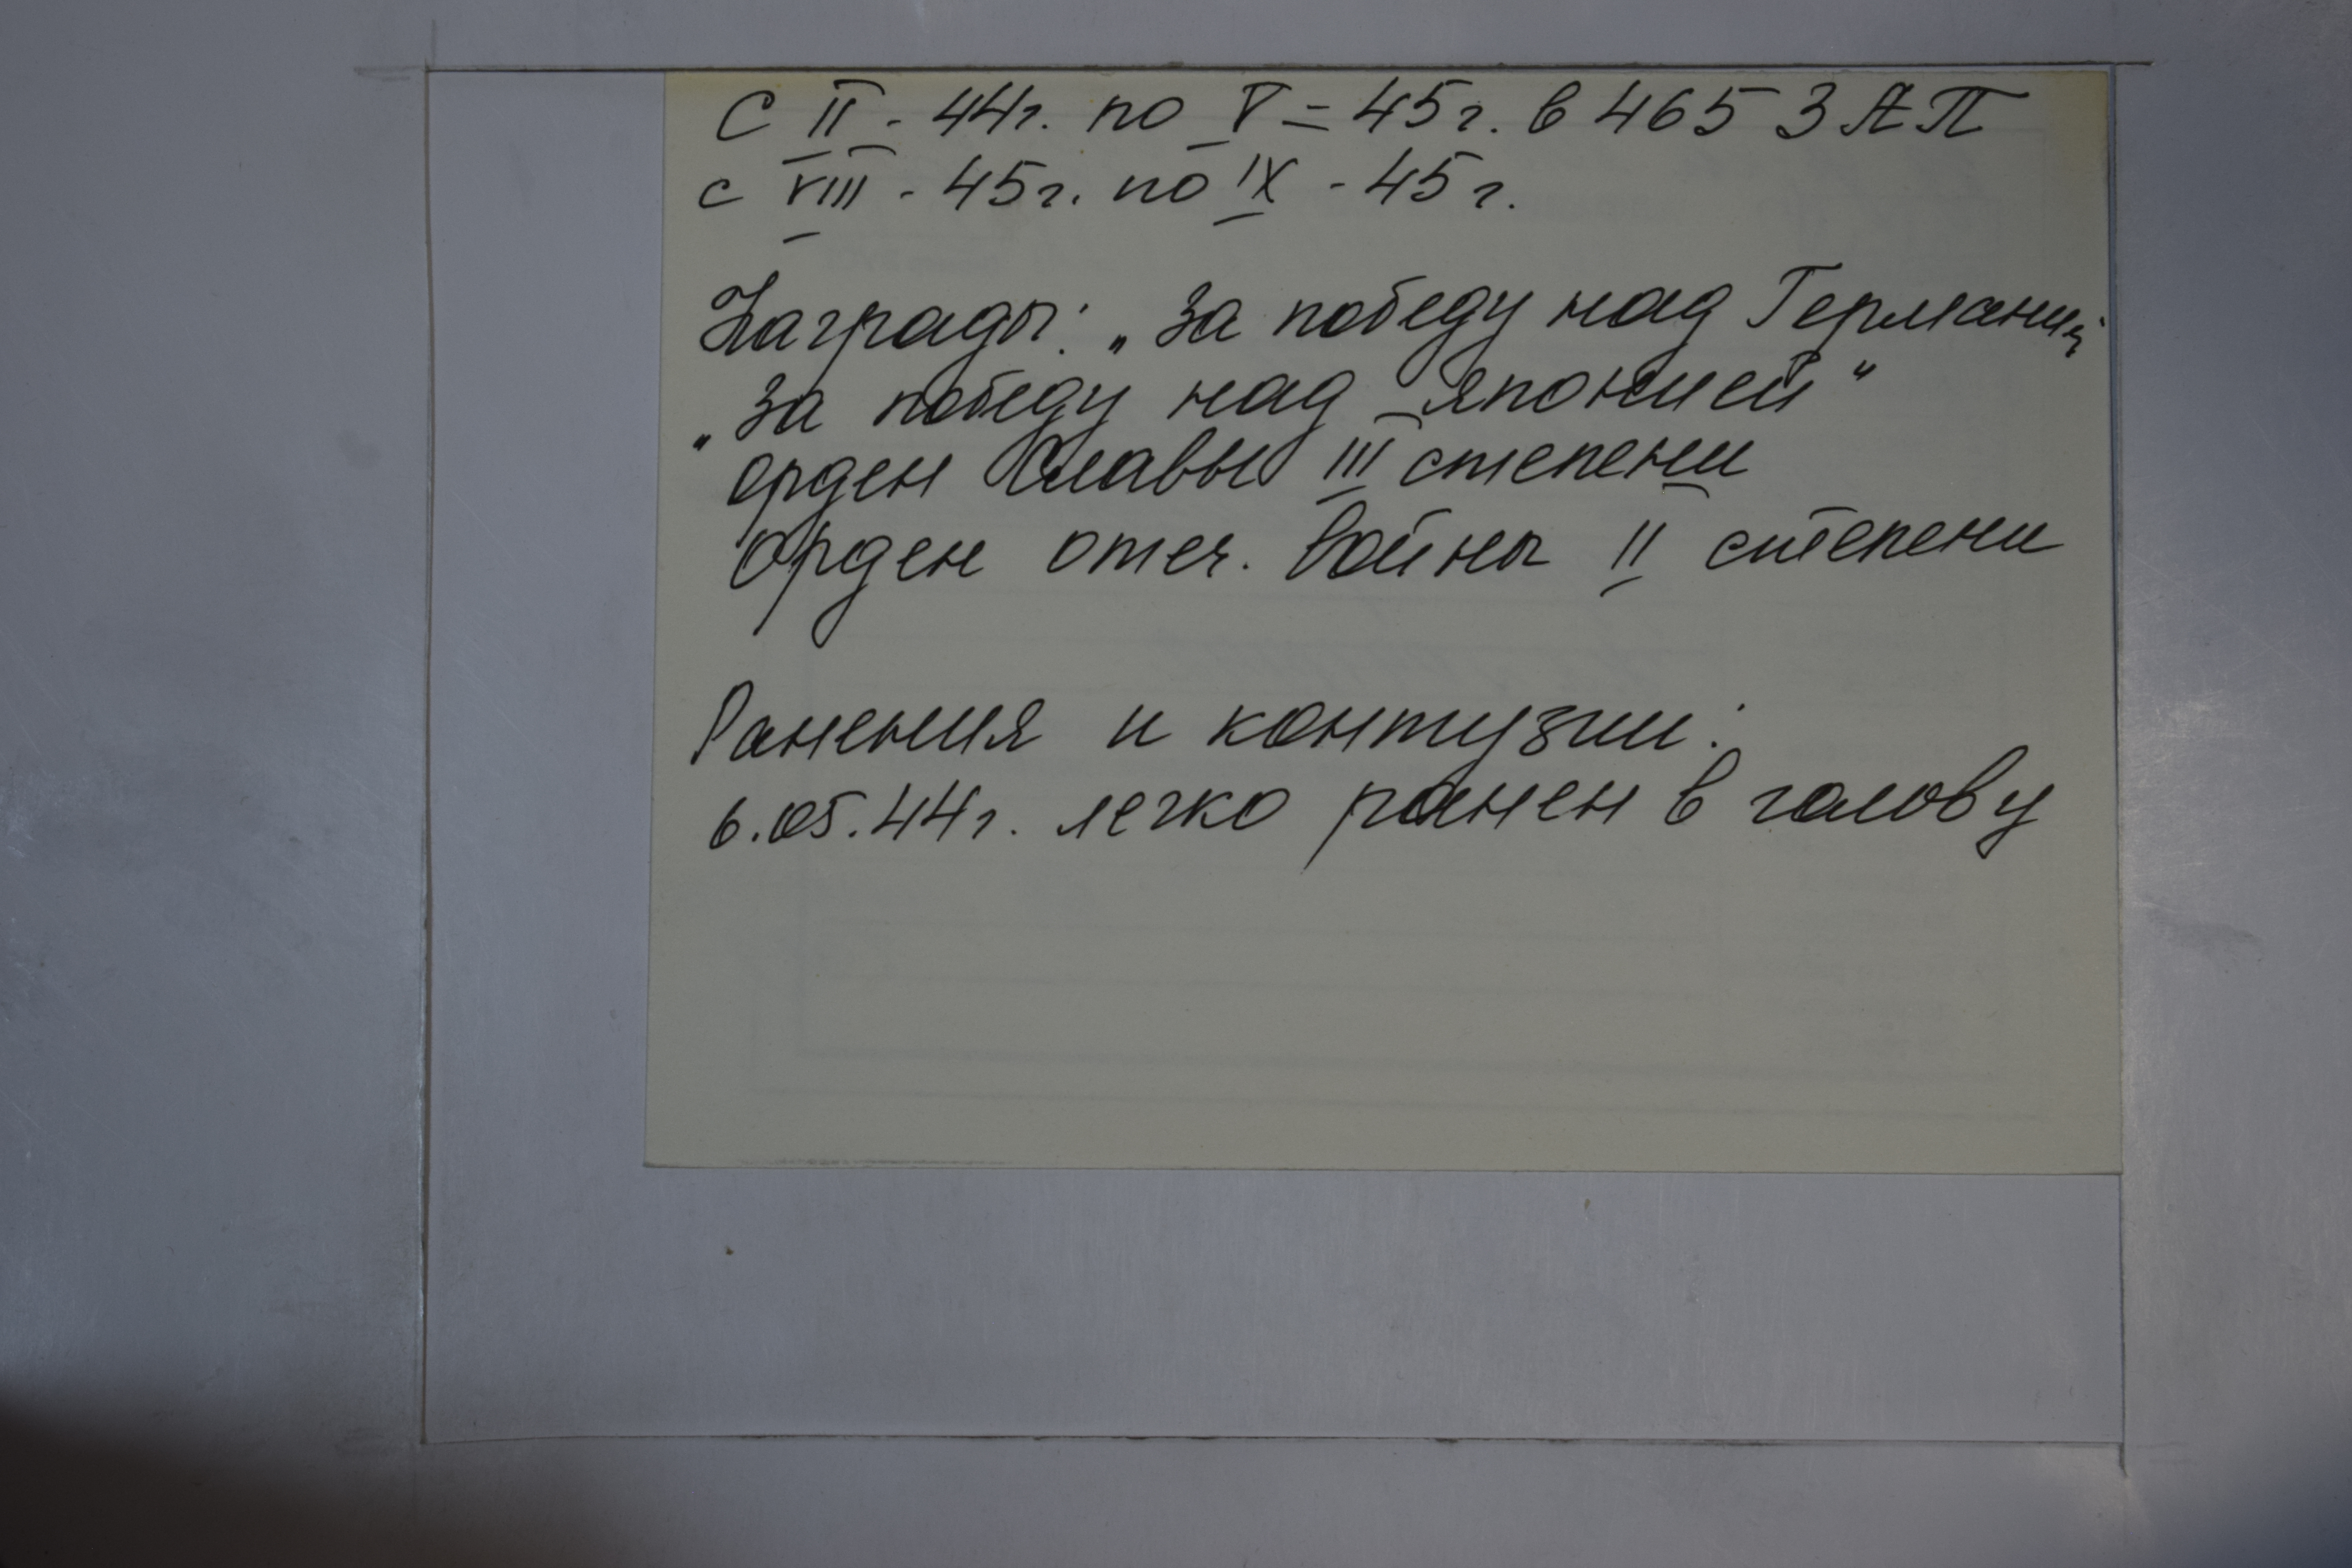 С II - 44г. по V = 45г. в 465 ЗАП
с VIII - 45г. по IX - 45г.
Награды: „За победу над Германи
„За победу над Японией"
орден Славы III степени
Орден отеч. войны II степени
Ранения и контузии:
6.05.44г. легко ранен в голову